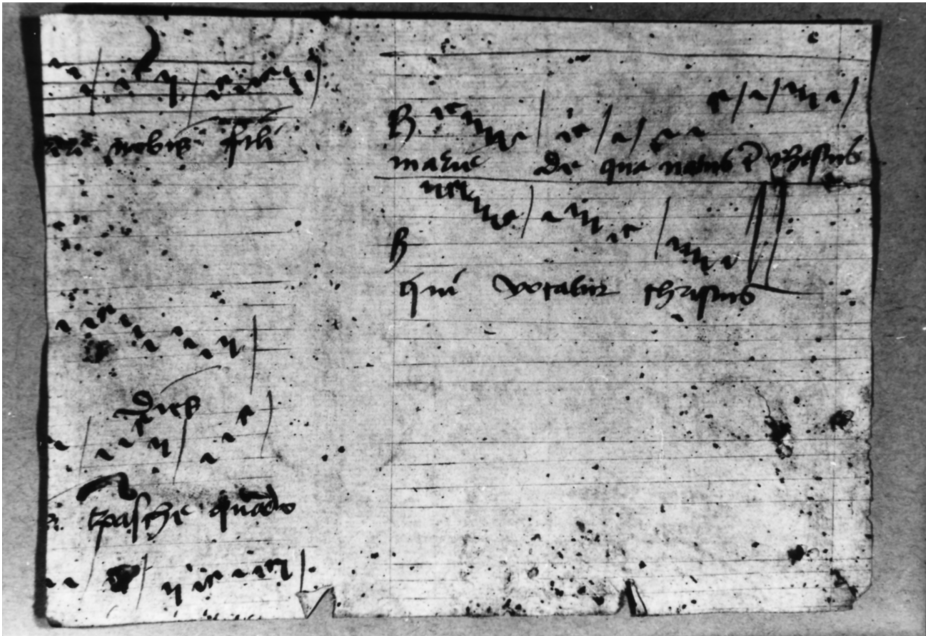 nobis fili
dies
pasche quado
marie de qua natus e Jhesus
qui vocatur christus